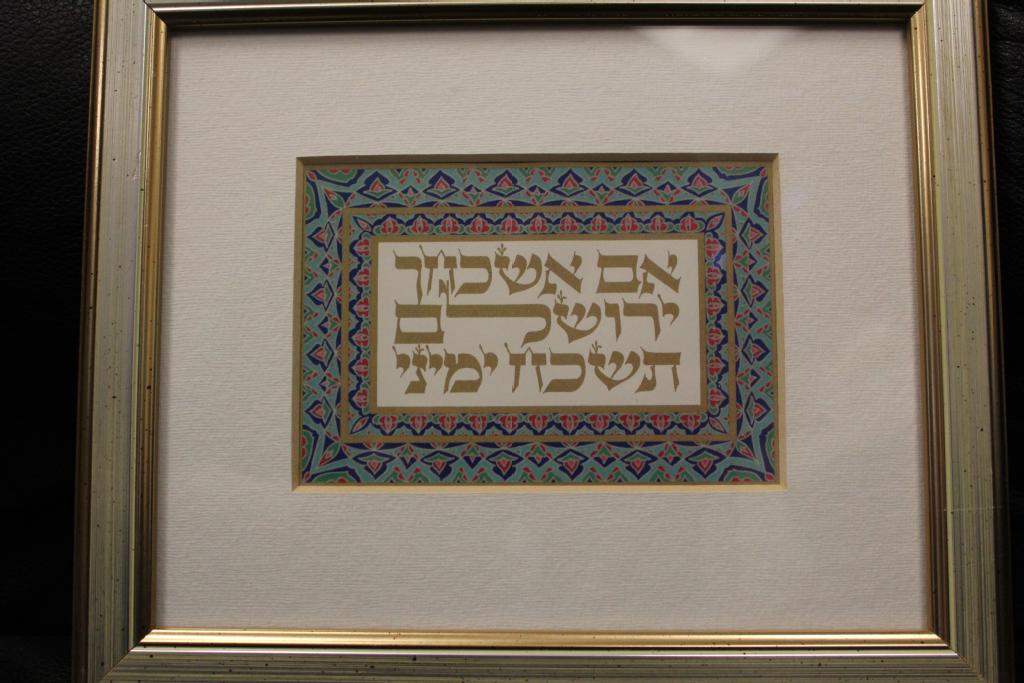 אם אשכחך
ירושלם
תשכח ימיני